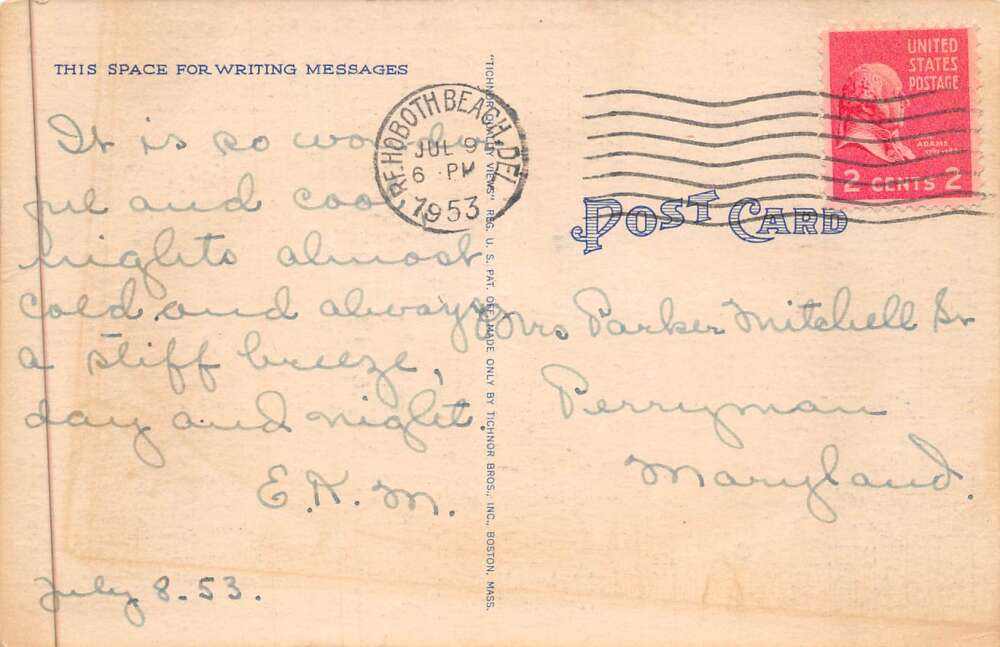 THIS SPACE FOR WRITING MESSAGES
It is so wonder
ful and cool
nights almost
cold and always
a stiff breeze,
day and night.
E.K.M.
July 8-53.
REHOBOTH BEACH, DEL.
JUL 9
6 PM
1953
"TICHNOR QUALITY VIEWS" REG. U. S. PAT. OFF. MADE ONLY BY TICHNOR BROS., INC., BOSTON, MASS.
UNITED
STATES
POSTAGE
ADAMS
2 CENTS 2
POST CARD
Mrs Parker Mitchell Sr
Perryman
Maryland.